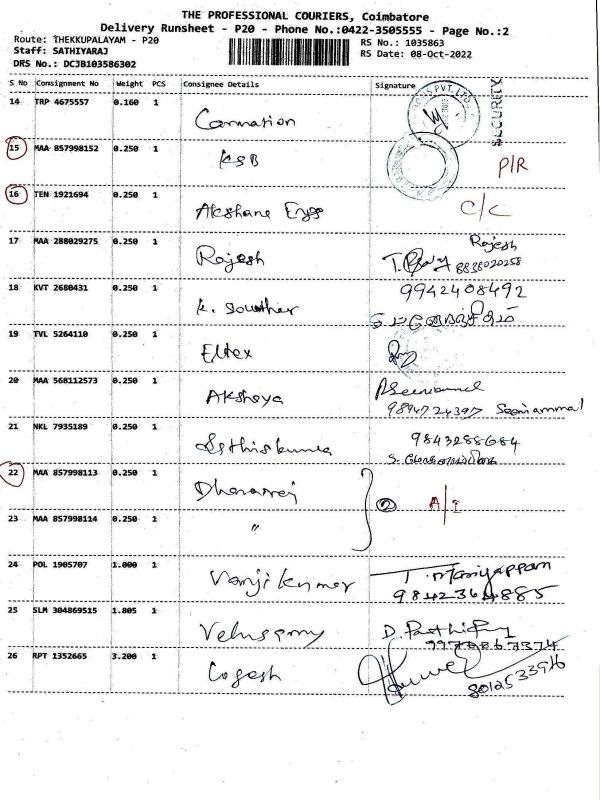 THE PROFESSIONAL COURIERS, Coimbatore
Delivery Runsheet - P20 - Phone No.:0422-3505555 - Page No.:2
Route: THEKKUPALAYAM - P20 RS No.: 1035863
Staff: SATHIYARAJ RS Date: 08-Oct-2022
DRS No.: DCJB103586302
S No Consignment No Weight PCS Consignee Details Signature
14 TRP 4675557 0.160 1 Carnation PVT. LTD. SECURITY
15 MAA 857998152 0.250 1 KSB P/R
16 TEN 1921694 0.250 1 Akshara Engg C/C
17 MAA 288029275 0.250 1 Rajesh Rajesh
8838020258
18 KVT 2680431 0.250 1 K. 9942408492
19 TVL 5264110 0.250 1 Eltex
20 MAA 568112573 0.250 1 Akshaya
9894724397 Seeniammal
21 NKL 7935189 0.250 1 9843288684
22 MAA 857998113 0.250 1 Dhanaraj 2 A/I
23 MAA 857998114 0.250 1 "
24 POL 1905707 1.000 1 Vanjikumar T. Mariyappan
9842364885
25 SLM 304869515 1.805 1 Velusamy
26 RPT 1352665 3.200 1 Logesh
8012533916